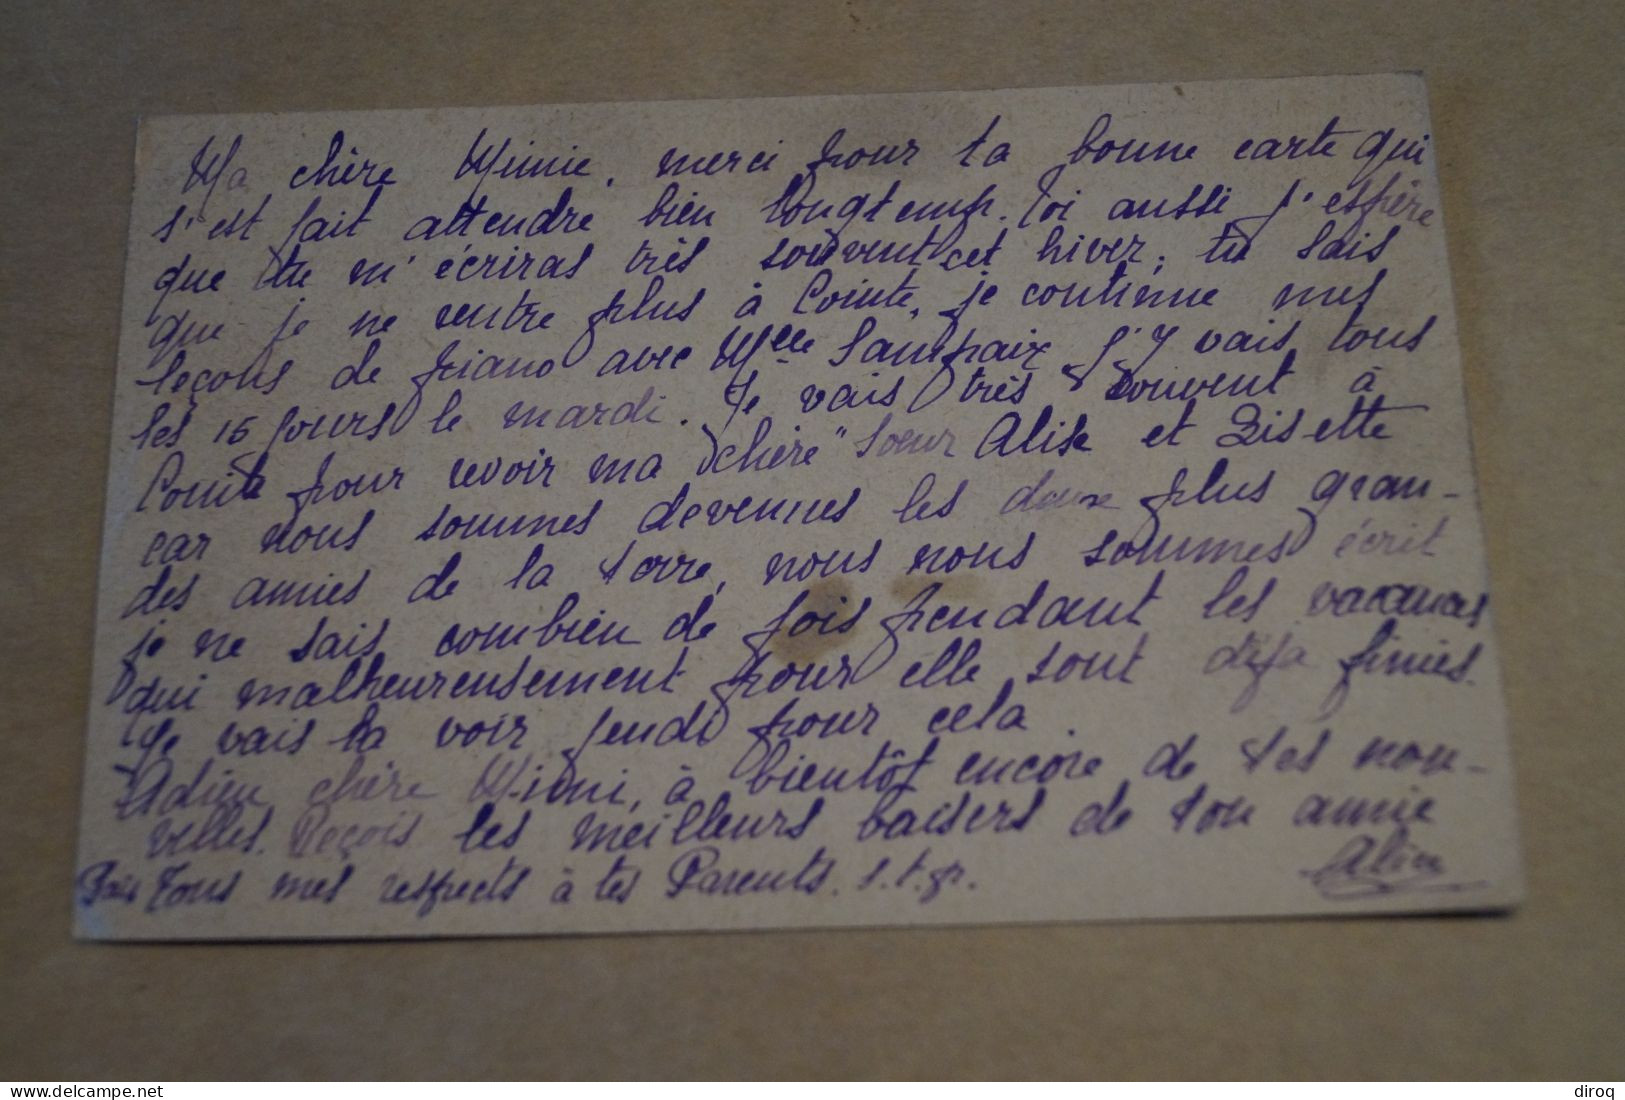 Ma chère Mimie, merci pour ta bonne carte qui
s'est fait attendre bien longtemp. Toi aussi j'espère
que tu m'écriras très souvent cet hiver, tu sais
que je ne rentre plus à Cointe, je continue mes
leçons de piano avec Melle Sampaix j'y vais tous
les 15 jours le mardi. Je vais très souvent à
Cointe pour revoir ma "chère" sœur Alise et Zisette
car nous sommes devenues les deux plus gran-
des amies de la terre, nous nous sommes écrit
je ne sais combien de fois pendant les vacances
qui malheureusement pour elle sont déja finies.
Je vais la voir jeudi pour cela.
Adieu chère Mimi, à bientôt encore de tes nou-
velles. Reçois les meilleurs baisers de ton amie
Tous mes respects à tes Parents. s.t.pr.
delcampe.net
diroq